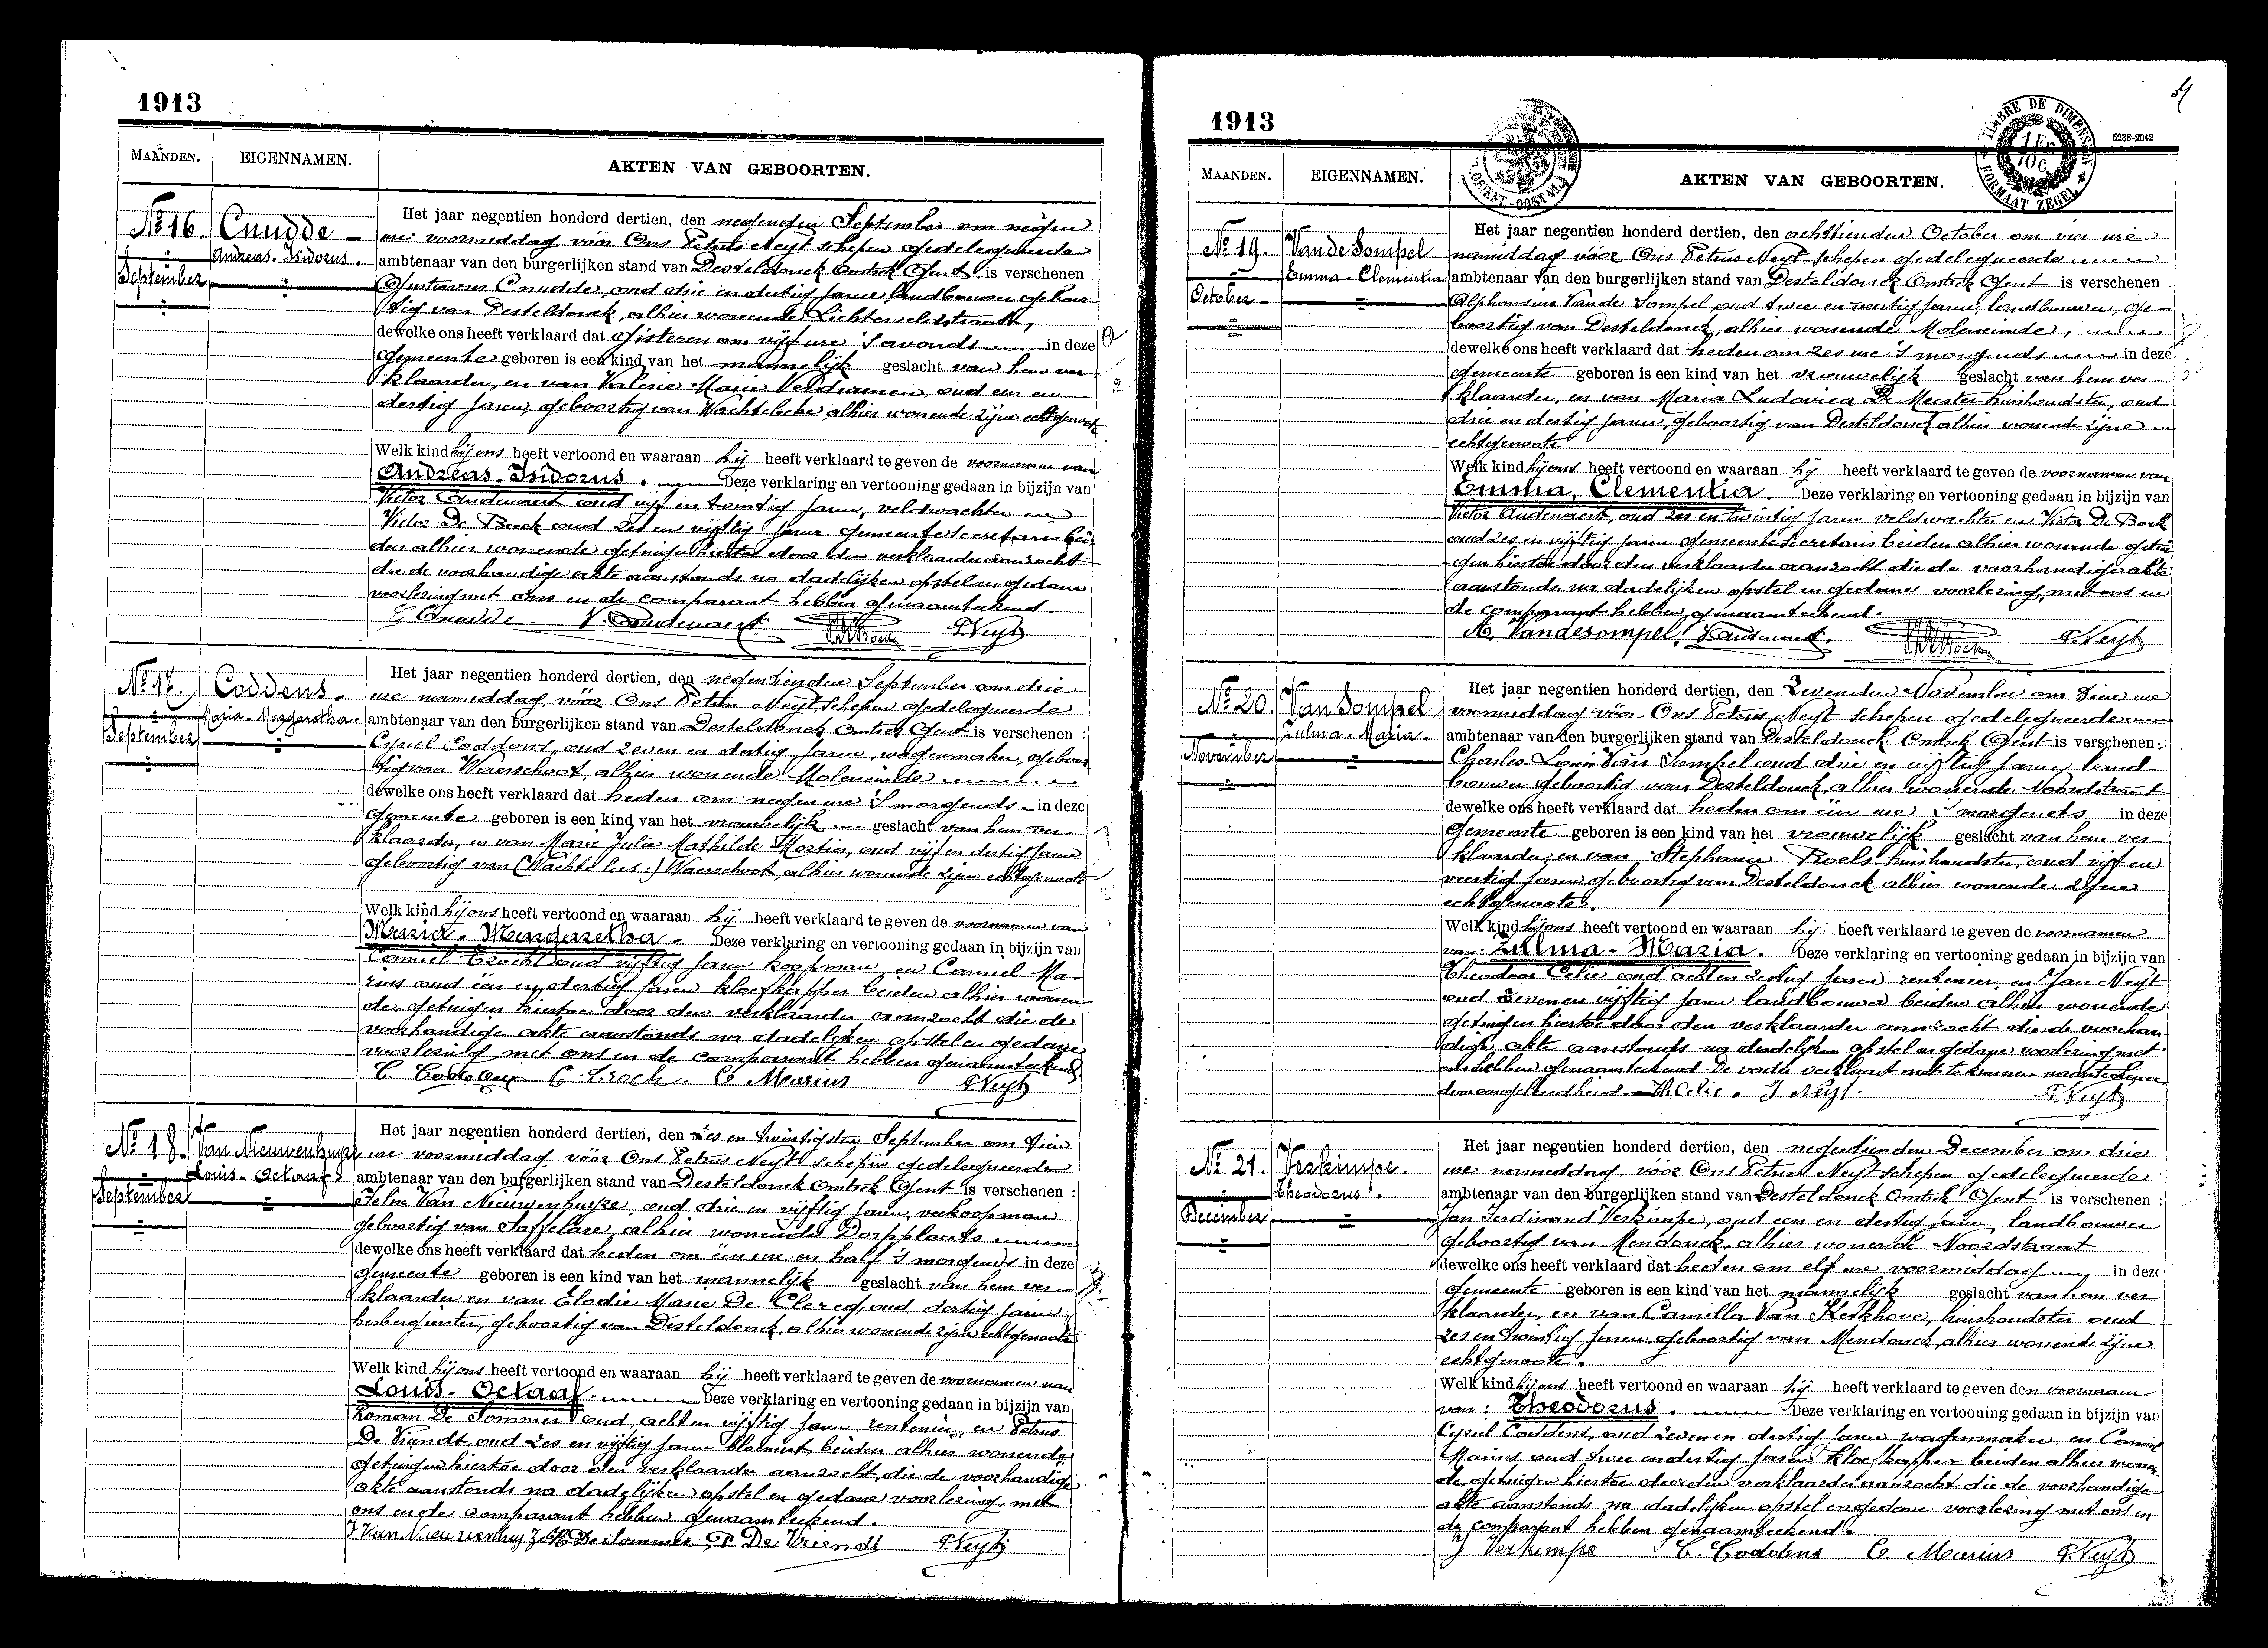 1913
MAANDEN. EIGENNAMEN. AKTEN VAN GEBOORTEN.
No 16. Cnudde
Andreas-Isidorus.
September
Het jaar negentien honderd dertien, den negenden September om negen
ure voormiddag vóór Ons Petrus Neyt schepen gedelegueerde
ambtenaar van den burgerlijken stand van Desteldonck Omtrek Gent is verschenen
Gustavus Cnudde, oud drie en dertig jaren landbouwer geboor-
tig van Desteldonck, alhier wonende Lichterveldstraat,
dewelke ons heeft verklaard dat gisteren om vijf ure 's avonds in deze
Gemeente geboren is een kind van het mannelijk geslacht van hem ver-
klaarder, en van Valerie Marie oud een en
dertig jaren, geboortig van Wachtebeke alhier wonende zijne echtgenoote
Welk kind hij ons heeft vertoond en waaraan hij heeft verklaard te geven de voornamen van
Andreas-Isidorus. Deze verklaring en vertooning gedaan in bijzijn van
Victor Audenaert oud vijf en twintig jaren, veldwachter en
Victor De Bock oud zes en vijftig jaren gemeentesecretaris bei-
den alhier wonende getuigen hiertoe door den verklaarder aanzocht
die de voorhandige akte aanstonds na dadelijken opstel en gedane
voorlezing met ons en de comparant hebben genaamteekend.
G Cnudde V. Audenaert P. Neyt
No 17. Coddens.
Maria-Margaretha.
September
Het jaar negentien honderd dertien, den negentienden September om drie
ure namiddag vóór Ons Petrus Neyt schepen gedelegueerde
ambtenaar van den burgerlijken stand van Desteldonck Omtrek Gent is verschenen :
Cyriel Coddens, oud zeven en dertig jaren, wagenmaker, geboor-
tig van Waerschoot, alhier wonende Moleneinde
dewelke ons heeft verklaard dat heden om negen ure 's morgends in deze
Gemeente geboren is een kind van het vrouwelijk geslacht van hem ver-
klaarder, en van Marie Julie Mathilde Mortier, oud vijf en dertig jaren
geboortig van Waerschoot alhier wonende zijne echtgenoote
Welk kind hij ons heeft vertoond en waaraan hij heeft verklaard te geven de voornamen van
Maria-Margaretha. Deze verklaring en vertooning gedaan in bijzijn van
Camiel oud vijftig jaren koopman en Camiel Ma-
rius oud een en dertig jaren kloefkapper beiden alhier wonen-
de, getuigen hiertoe door den verklaarder aanzocht die de
voorhandige akte aanstonds na dadelijken opstel en gedane
voorlezing met ons en de comparant hebben genaamteekend
C. Coddens C. Marius P. Neyt
No 18. Van Nieuwenhuyze
Louis-Octaaf
September
Het jaar negentien honderd dertien, den zes en twintigsten September om tien
ure voormiddag vóór Ons Petrus Neyt schepen gedelegueerde
ambtenaar van den burgerlijken stand van Desteldonck Omtrek Gent is verschenen :
Van Nieuwenhuyze, oud drie en vijftig jaren, verkoopman
geboortig van Saffelare, alhier wonende Dorpplaats
dewelke ons heeft verklaard dat heden om een ure en half 's morgends in deze
Gemeente geboren is een kind van het mannelijk geslacht van hem ver-
klaarder en van Elodie Marie De Clercq, oud dertig jaren
herbergierster, geboortig van Desteldonck, alhier wonende zijne echtgenoote
Welk kind hij ons heeft vertoond en waaraan hij heeft verklaard te geven de voornamen van
Louis-Octaaf. Deze verklaring en vertooning gedaan in bijzijn van
Roman De Sommer oud acht en vijftig jaren rentenier, en Petrus
De Vriendt, oud zes en vijftig jaren bloemist beiden alhier wonende
getuigen hiertoe door den verklaarder aanzocht, die de voorhandige
akte aanstonds na dadelijken opstel en gedane voorlezing, met
ons en de comparant hebben genaamteekend.
Van Nieuwenhuyze De Sommer P De Vriendt P. Neyt
1913
5238-2042
TIMBRE DE DIMENSION
1 Fr
10C
FORMAAT ZEGEL
MAANDEN. EIGENNAMEN. AKTEN VAN GEBOORTEN.
No 19. Van de Sompel
Emma-Clementia
October
Het jaar negentien honderd dertien, den achttienden October om vier ure
namiddag vóór Ons Petrus Neyt schepen gedelegueerde
ambtenaar van den burgerlijken stand van Desteldonck Omtrek Gent is verschenen
Alphonsius Van de Sompel, oud twee en veertig jaren, landbouwer, ge-
boortig van Desteldonck, alhier wonende Moleneinde,
dewelke ons heeft verklaard dat heden om zes ure 's morgends in deze
Gemeente geboren is een kind van het vrouwelijk geslacht van hem ver-
klaarder, en van Maria Ludovica De Meester huishoudster, oud
drie en dertig jaren, geboortig van Desteldonck alhier wonende zijne
echtgenoote
Welk kind hij ons heeft vertoond en waaraan hij heeft verklaard te geven de voornamen van
Emma, Clementia. Deze verklaring en vertooning gedaan in bijzijn van
Victor Audenaert, oud zes en twintig jaren veldwachter en Victor De Bock
oud zes en vijftig jaren gemeentesecretaris beiden alhier wonende getui-
gen hiertoe door den verklaarder aanzocht die de voorhandige akte
aanstonds na dadelijken opstel en gedane voorlezing, met ons en
de comparant hebben genaamteekend.
A. Vandesompel. V. Audenaert. P. Neyt
No 20. Van Sompel
Zulma-Maria.
November
Het jaar negentien honderd dertien, den zevenden November om tien ure
voormiddag vóór Ons Petrus Neyt schepen gedelegueerde
ambtenaar van den burgerlijken stand van Desteldonck Omtrek Gent is verschenen :
Charles Louis Van Sompel oud drie en vijftig jaren, land-
bouwer geboortig van Desteldonck, alhier wonende Noordstraat
dewelke ons heeft verklaard dat heden om één ure 's morgends in deze
Gemeente geboren is een kind van het vrouwelijk geslacht van hem ver-
klaarder, en van Stephanie Roels, huishoudster, oud vijf en
veertig jaren geboortig van Desteldonck alhier wonende zijne
echtgenoote.
Welk kind hij ons heeft vertoond en waaraan hij heeft verklaard te geven de voornamen
van: Zulma-Maria. Deze verklaring en vertooning gedaan in bijzijn van
Theodoor Celie oud acht en zestig jaren rentenier, en Jan Neyt
oud zeven en vijftig jaren landbouwer beiden alhier wonende
getuigen hiertoe door den verklaarder aanzocht die de voorhan-
dige akte aanstonds na dadelijken opstel en gedane voorlezing met
ons hebben genaamteekend. De vader verklaart niet te kunnen naamteekenen
door ongeleerdheid. Th. Celie. J Neyt. P. Neyt
No 21. Verkimpe.
Theodorus.
December
Het jaar negentien honderd dertien, den negentienden December om drie
ure namiddag, vóór Ons Petrus Neyt schepen gedelegueerde
ambtenaar van den burgerlijken stand van Desteldonck Omtrek Gent is verschenen :
Jan Ferdinand Verkimpe, oud een en dertig jaren, landbouwer
geboortig van Mendonck, alhier wonende Noordstraat
dewelke ons heeft verklaard dat heden om elf ure voormiddag in deze
Gemeente geboren is een kind van het mannelijk geslacht van hem ver
klaarder, en van Camilla Van Kerkhove, huishoudster oud
zes en twintig jaren, geboortig van Mendonck, alhier wonende zijne
echtgenoote.
Welk kind hij ons heeft vertoond en waaraan hij heeft verklaard te geven den voornaam
van : Theodorus. Deze verklaring en vertooning gedaan in bijzijn van
Cyriel Coddens, oud zeven en dertig jaren wagenmaker en Camiel
Marius oud twee en dertig jaren kloefkapper beiden alhier wonen-
de, getuigen hiertoe door den verklaarder aanzocht die de voorhandige
akte aanstonds na dadelijken opstel en gedane voorlezing met ons en
de comparant hebben genaamteekend.
J Verkimpe C. Coddens C Marius P. Neyt